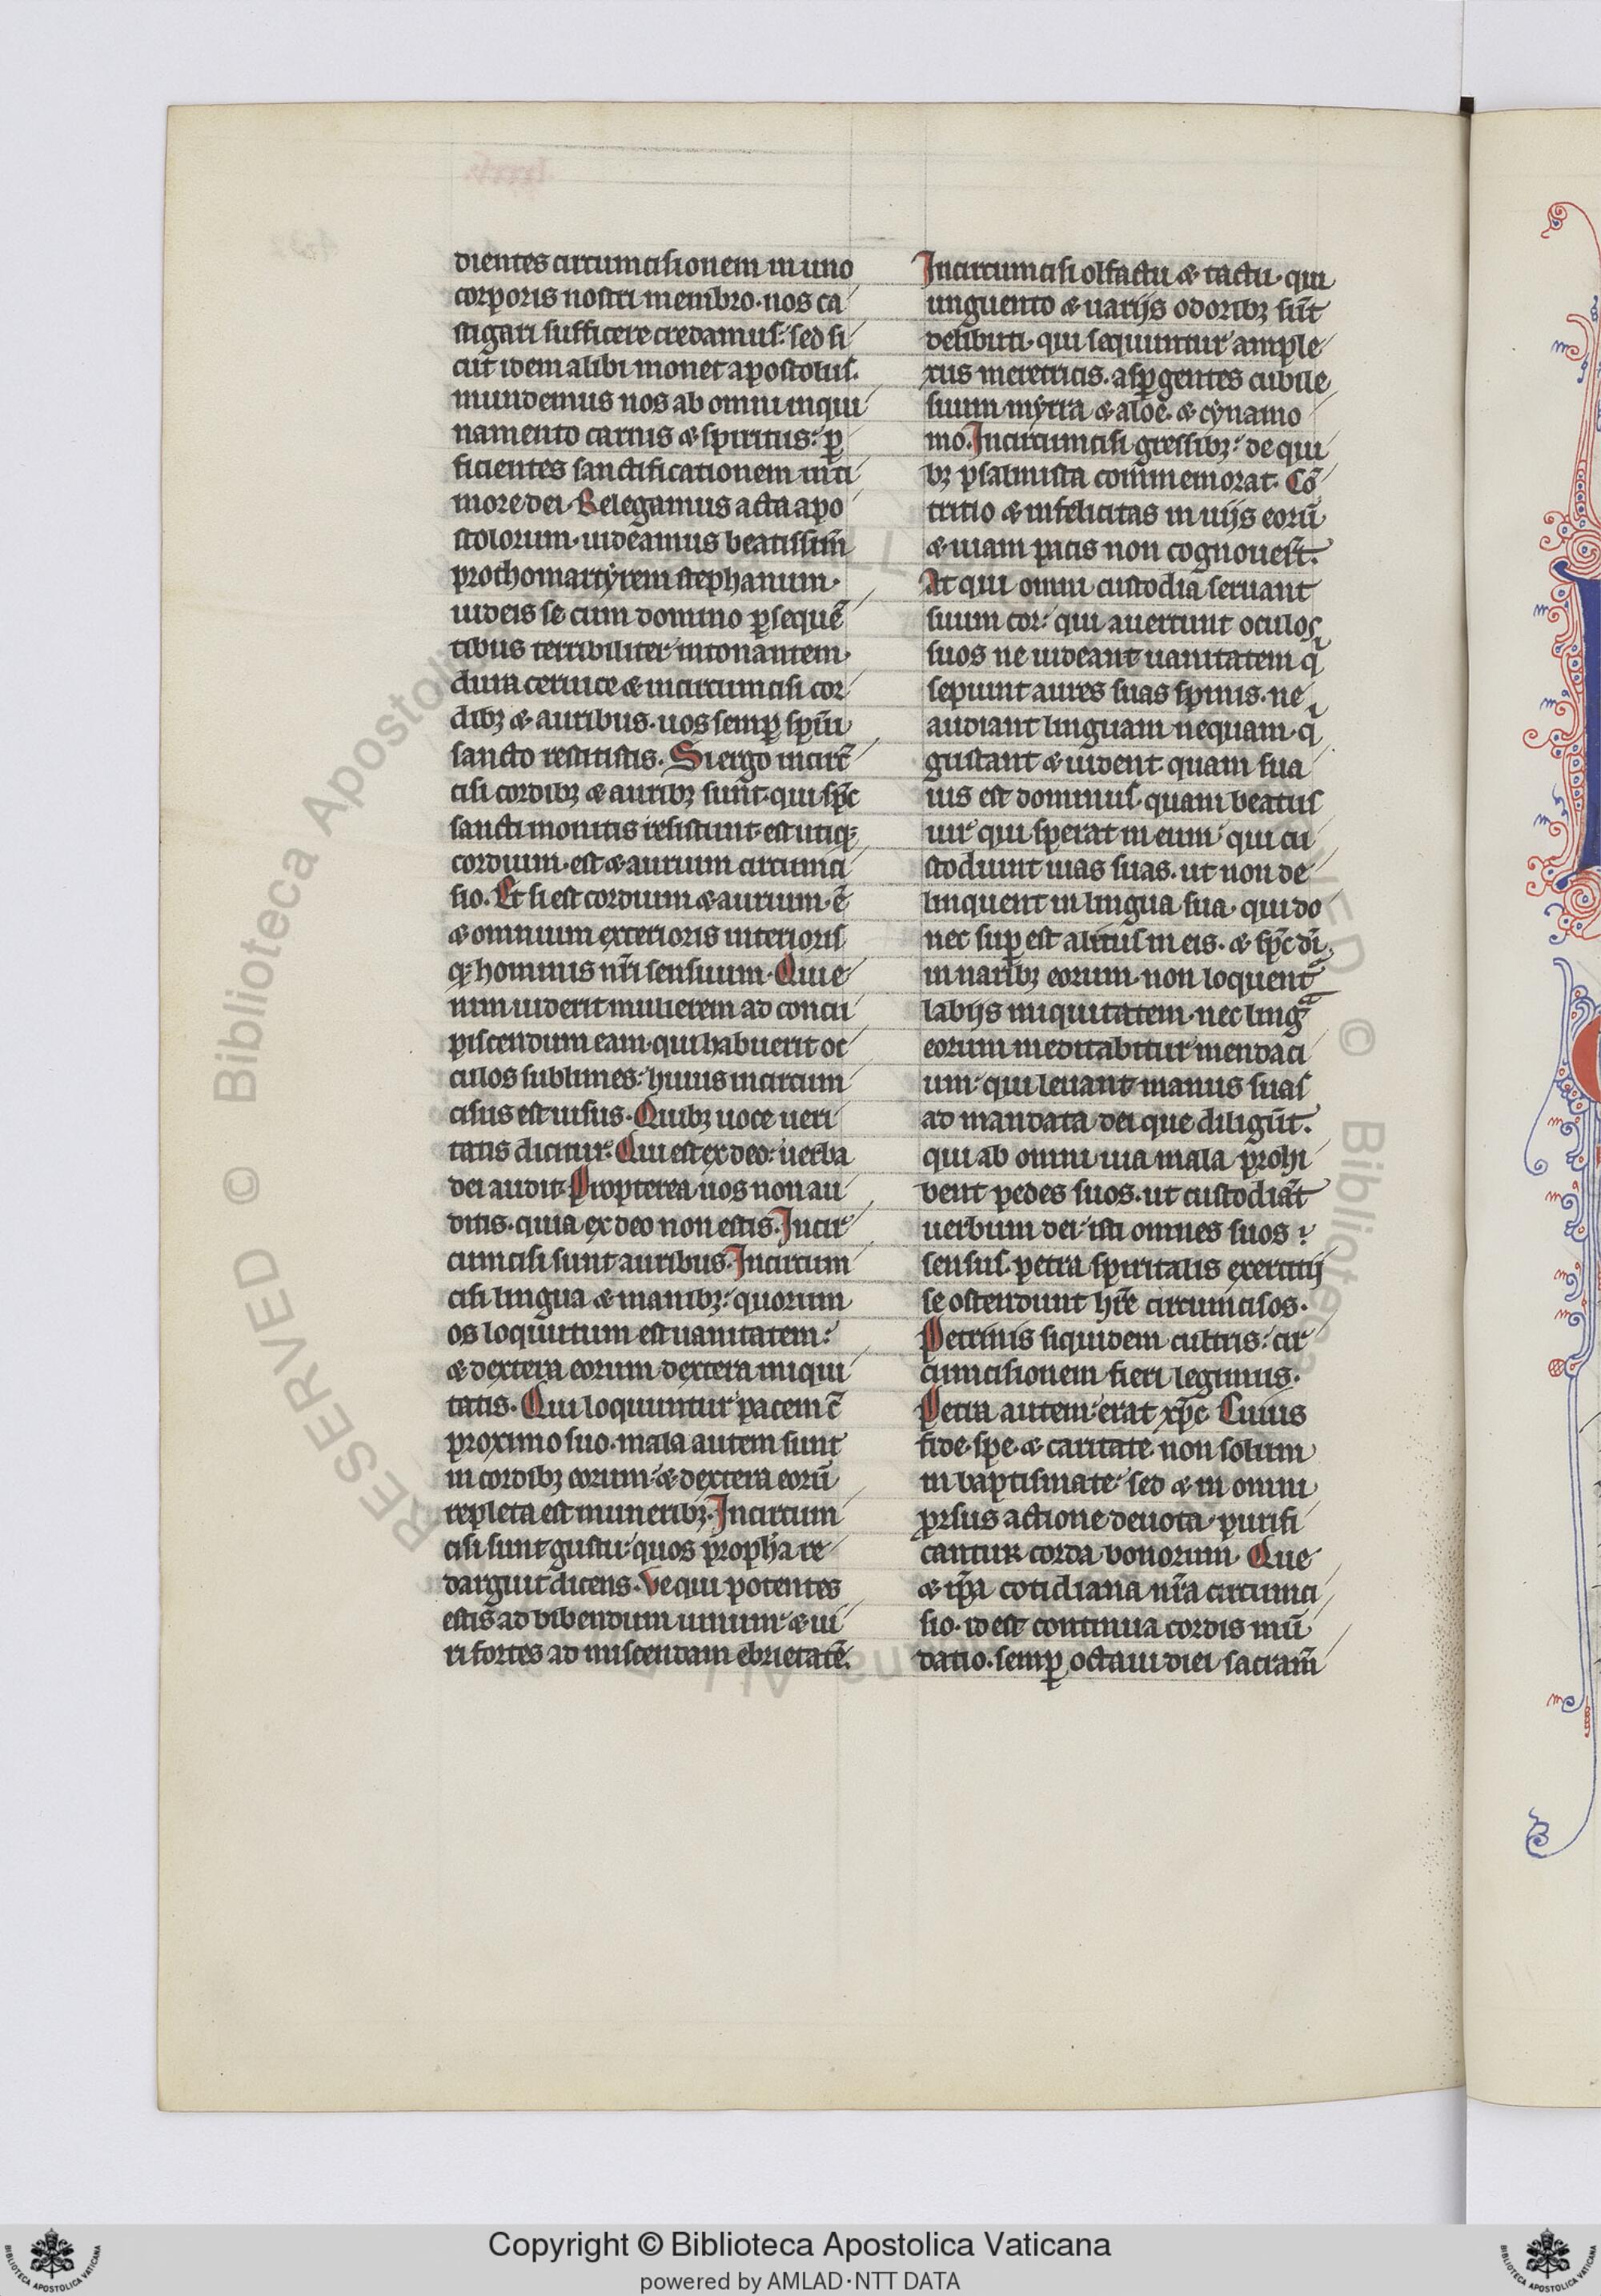 dientes circumcisionem in uno
corporis nostri membro · nos ca
stigari sufficere credamus : sed si
cut idem alibi monet apostolus .
mundemus nos ab omni inqui
namento carnis & spiritus : ꝑ
ficientes sanctificationem in ti
more dei · Relegamus acta apo
stolorum · uideamus beatissim̄
prothomartyrem stephanum ·
iudeis se cum domino ꝑsequē
tibus terribiliter intonantem ·
dura ceruice & incircumcisi cor
dibꝫ & auribus · uos semꝑ spū̄i
sancto restitistis . Si ergo incirc̄
cisi cordibꝫ & auribꝫ sunt · qui spc̄
sancti monitis resistunt · est utiqꝫ
cordium · est & aurium circumci
sio . Et si est cordium & aurium · ē
& omnium exterioris interioris
qꝫ hominis nr̄i sensuum · Qui e
nim uiderit mulierem ad concu
piscendum eam · qui habuerit oc
culos sublimes : huius incircum
cisus est uisus · Quibꝫ uoce ueri
tatis dicitur . Qui est ex deo : uerba
dei audit · Propterea uos non au
ditis · quia ex deo non estis . Incir
cumcisi sunt auribus · Incircum
cisi lingua & manibꝫ : quorum
os loquutum est uanitatem :
& dextera eorum dextera iniqui
tatis . Qui loquuntur pacem c̄
proximo suo · mala autem sunt
in cordibꝫ eorum : & dextera eorū
repleta est muneribꝫ . Incircum
cisi sunt gustu : quos propha re
darguit dicens . Ve qui potentes
estis ad bibendum uinum : & ui
ri fortes ad miscendam ebrietatē .
Incircumcisi olfactu & tactu · qui
unguento & uarijs odoribꝫ sūt
delibuti · qui sequuntur ample
xus meretricis . asꝑgentes cubile
suum myrra & aloe . & cynamo
mo . Incircumcisi gressibꝫ : de qui
bꝫ psalmista commemorat . Cō
tritio & infelicitas in uijs eorū
& uiam pacis non cognouer̄t .
At qui omni custodia seruant
suum cor : qui auertunt oculos
suos ne uideant uanitatem q̄
sepiunt aures suas spinis . ne
audiant linguam nequam · q̄
gustant & uident quam sua
uis est dominus · quam beatus
uir qui sperat in eum : qui cu
stodiunt uias suas . ut non de
linquent in lingua sua · qui do
nec suꝑ est alitus in eis . & spc̄ dī
in naribꝫ eorum · non loquent
labijs iniquitatem · nec ling
eorum meditabitur mendaci
um : qui leuant manus suas
ad mandata dei que diligūt .
qui ab omni uia mala prohi
bent pedes suos . ut custodiāt
uerbum dei : isti omnes suos
sensus · petra spiritalis exercitij
se ostendunt hr̄e circumcisos .
Petrinis siquidem cultris : cir
cumcisionem fieri legimus .
Petra autem : erat xp̄c Cuius
fide · spe · & caritate non solum
in baptismate : sed & in omni
prsus actione deuota · purifi
cantur corda bonorum · Que
& ip̄a cotidiana nr̄a circumci
sio · id est continua cordis mū
datio . semꝑ octaui diei sacram̄
RESERVED © Biblioteca Apostolica
Copyright © Biblioteca Apostolica Vaticana
powered by AMLAD·NTT DATA
BIBLIOTECA APOSTOLICA VATICANA
BIBLIOTECA APOSTOLICA VATICANA